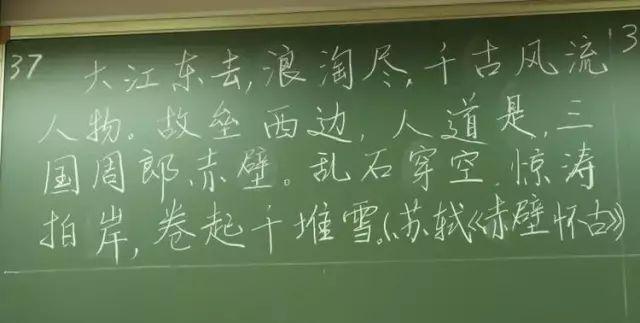 37
大江东去,浪淘尽,千古风流
人物。故垒西边,人道是,三
国周郎赤壁。乱石穿空,惊涛
拍岸,卷起千堆雪。(苏轼《赤壁怀古》)